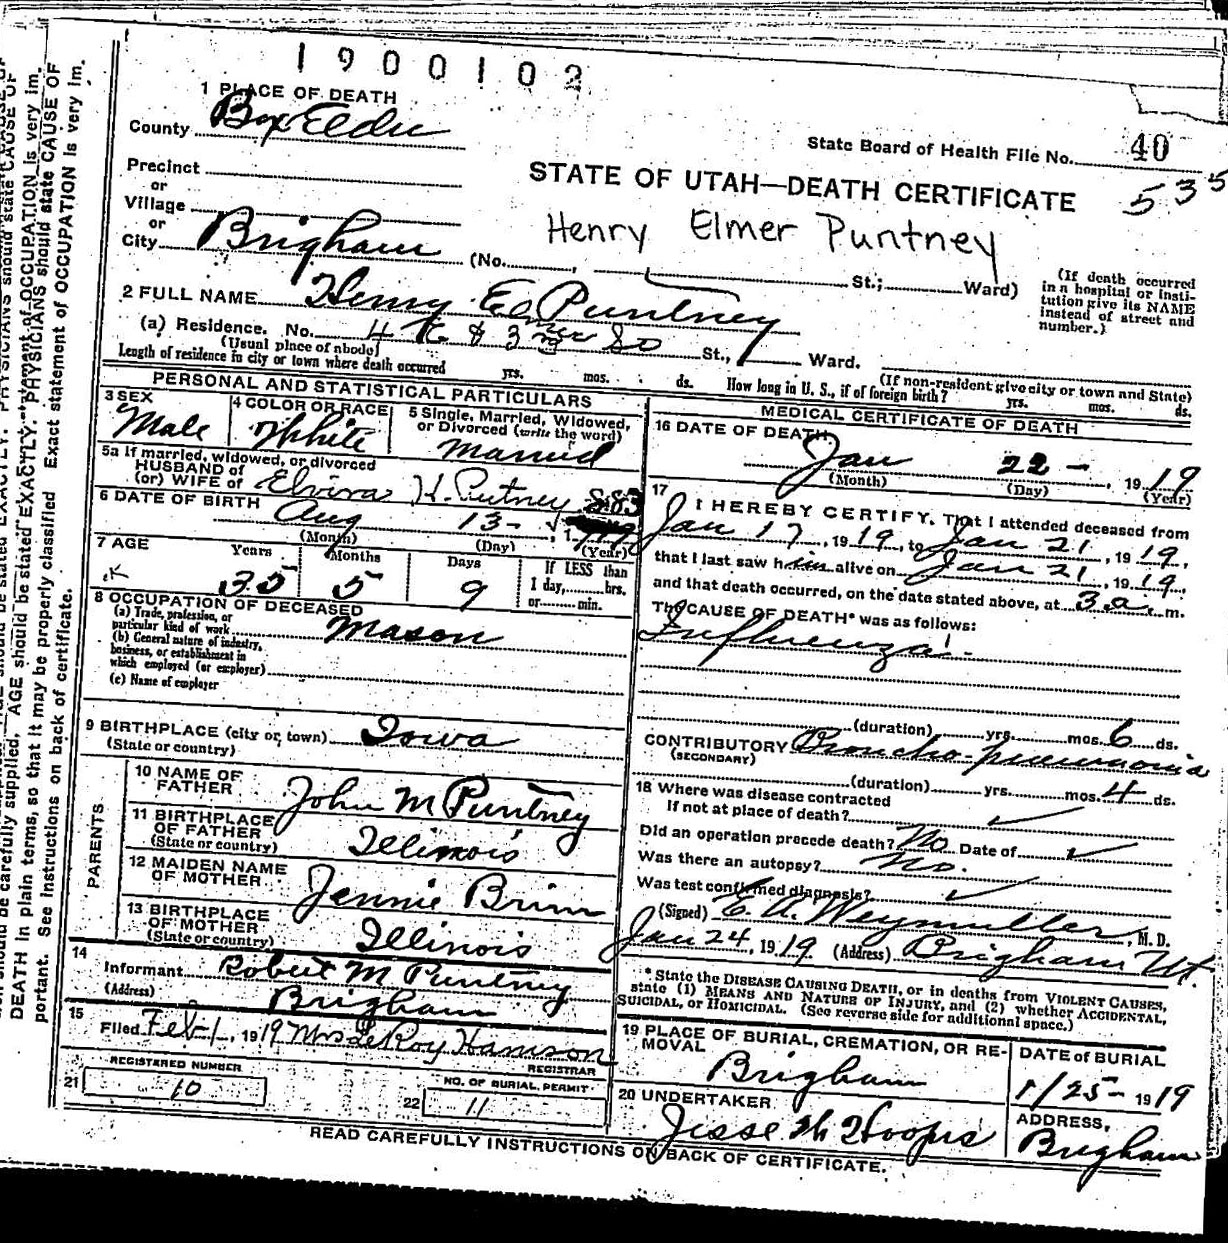 1900102
1 PLACE OF DEATH
County Box Elder
State Board of Health File No. 40
535
Precinct
or
Village
or
City Brigham
STATE OF UTAH—DEATH CERTIFICATE
Henry Elmer Puntney
(No. , St.; Ward)
(If death occurred in a hospital or insti-
tution give its NAME
instead of street and
number.)
2 FULL NAME Henry E Puntney
(a) Residence. No. 4 & 3 So St., Ward.
(Usual place of abode)
(If non-resident give city or town and State)
Length of residence in city or town where death occurred yrs. mos. ds. How long in U. S., if of foreign birth? yrs. mos. ds.
PERSONAL AND STATISTICAL PARTICULARS
3 SEX
Male
4 COLOR OR RACE
White
5 Single, Married, Widowed,
or Divorced (write the word)
Married
5a If married, widowed, or divorced
HUSBAND of
(or) WIFE of Elvira K. Putney
6 DATE OF BIRTH Aug 13- 883
(Month) (Day) (Year)
7 AGE Years Months Days If LESS than
1 day, hrs.
or min.
35 5 9
8 OCCUPATION OF DECEASED
(a) Trade, profession, or
particular kind of work Mason
(b) General nature of industry,
business, or establishment in
which employed (or employer)
(c) Name of employer
9 BIRTHPLACE (city or town) Iowa
(State or country)
PARENTS
10 NAME OF
FATHER John M Puntney
11 BIRTHPLACE
OF FATHER
(State or country) Illinois
12 MAIDEN NAME
OF MOTHER Jennie Brim
13 BIRTHPLACE
OF MOTHER
(State or country) Illinois
14
Informant Robert M Puntney
(Address) Brigham
15
Filed Feb 1, 1919 Mrs LeRoy Hamson
REGISTRAR
REGISTERED NUMBER
21 10
NO. OF BURIAL PERMIT
22 11
MEDICAL CERTIFICATE OF DEATH
16 DATE OF DEATH
Jan 22-, 1919
(Month) (Day) (Year)
17 I HEREBY CERTIFY, That I attended deceased from
Jan 17, 1919, to Jan 21, 1919,
that I last saw him alive on Jan 21, 1919,
and that death occurred, on the date stated above, at 3 a. m.
The CAUSE OF DEATH* was as follows:
Influenza
(duration) yrs. mos. 6 ds.
CONTRIBUTORY Broncho-pneumonia
(SECONDARY)
(duration) yrs. mos. 4 ds.
18 Where was disease contracted
If not at place of death?
Did an operation precede death? No Date of
Was there an autopsy? No.
Was test confirmed diagnosis?
(Signed) E. A. Weymuller, M. D.
Jan 24, 1919 (Address) Brigham Ut.
* State the DISEASE CAUSING DEATH, or in deaths from VIOLENT CAUSES,
state (1) MEANS AND NATURE OF INJURY, and (2) whether ACCIDENTAL,
SUICIDAL, or HOMICIDAL. (See reverse side for additional space.)
19 PLACE OF BURIAL, CREMATION, OR RE-
MOVAL
Brigham
DATE of BURIAL
1/25- 1919
20 UNDERTAKER
Jesse W Hoopes
ADDRESS,
Brigham
READ CAREFULLY INSTRUCTIONS ON BACK OF CERTIFICATE.
should be carefully supplied. AGE should be stated EXACTLY. PHYSICIANS should state CAUSE OF
DEATH In plain terms, so that it may be properly classified. Exact statement of OCCUPATION is very im-
portant. See instructions on back of certificate.